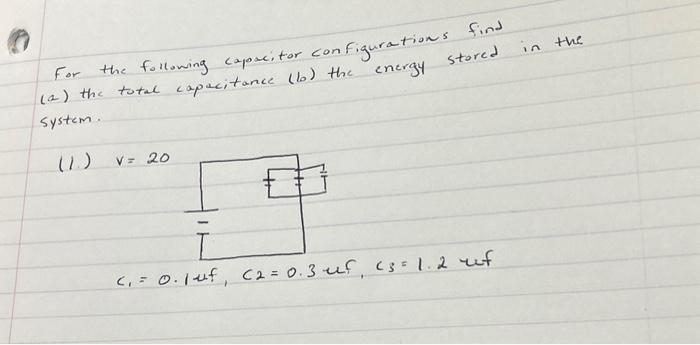 For the following capacitor configurations find
(a) the total capacitance (b) the energy stored in the
system.
(1.) V = 20
C1 = 0.1 uf, C2 = 0.3 uf, C3 = 1.2 uf